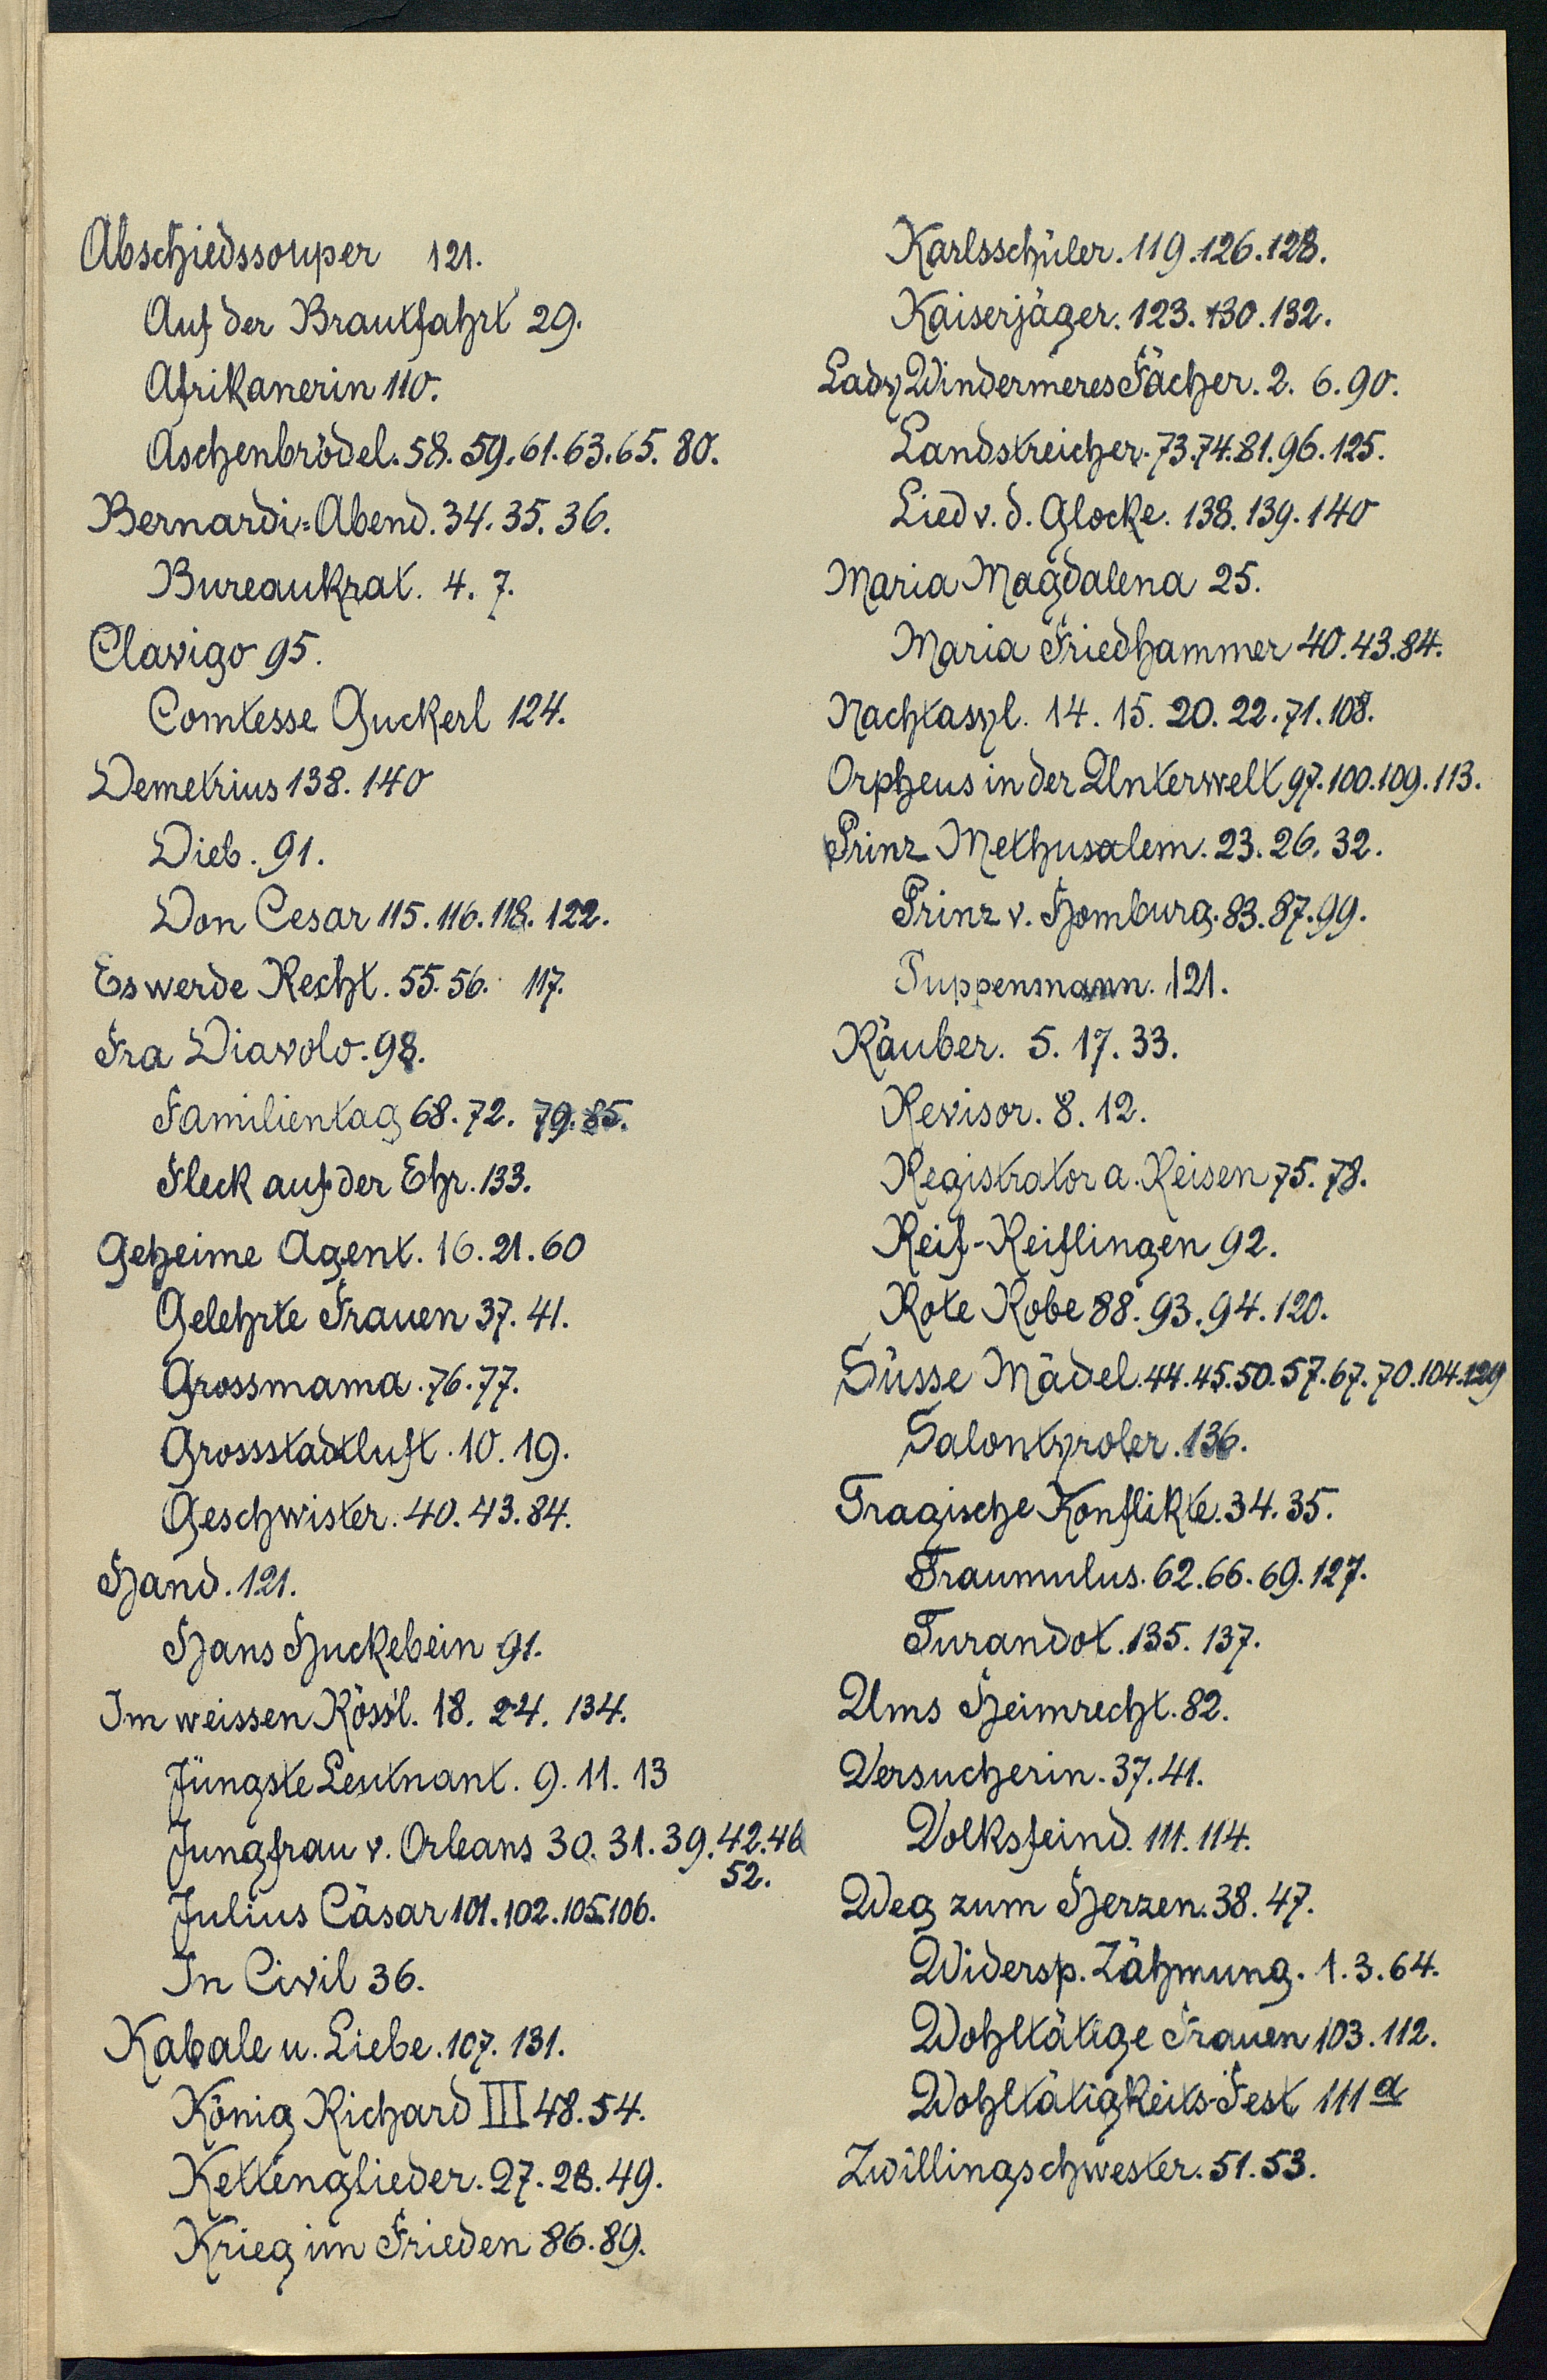 Abschiedssouper 121.
Auf der Brautfahrt 29.
Afrikanerin 110.
Aschenbrödel. 58. 59. 61. 63. 65. 80.
Bernardi=Abend. 34. 35. 36.
Bureaukrat. 4. 7.
Clavigo 95.
Comtesse Guckerl 124.
Demetrius 138. 140
Dieb. 91.
Don Cesar 115. 116. 118. 122.
Es werde Recht. 55. 56. 117.
Fra Diavolo. 98.
Familientag 68. 72. 79. 85.
Fleck auf der Ehr. 133.
Geheime Agent. 16. 21. 60
Gelehrte Frauen 37. 41.
Grossmama. 76. 77.
Grossstadtluft. 10. 19.
Geschwister. 40. 43. 84.
Hand. 121.
Hans Huckebein 91.
Im weissen Rössl. 18. 24. 134.
Jüngste Leutnant. 9. 11. 13
Jungfrau v. Orleans 30. 31. 39. 42. 46
52.
Julius Cäsar 101. 102. 105. 106.
In Civil 36.
Kabale u. Liebe. 107. 131.
König Richard III 48. 54.
Kettenglieder. 27. 28. 49.
Krieg im Frieden 86. 89.
Karlsschüler. 119. 126. 128.
Kaiserjäger. 123. 130. 132.
Lady Windermeres Fächer. 2. 6. 90.
Landstreicher. 73. 74. 81. 96. 125.
Lied v. d. Glocke. 138. 139. 140
Maria Magdalena 25.
Maria Friedhammer 40. 43. 84.
Nachtasyl. 14. 15. 20. 22. 71. 108.
Orpheus in der Unterwelt 97. 100. 109. 113.
Prinz Methusalem. 23. 26. 32.
Prinz v. Homburg. 83. 87. 99.
Puppenmann. 121.
Räuber. 5. 17. 33.
Revisor. 8. 12.
Registrator a. Reisen 75. 78.
Reif-Reiflingen 92.
Rote Robe 88. 93. 94. 120.
Süsse Mädel. 44. 45. 50. 57. 67. 70. 104. 129
Salontyroler. 136.
Tragische Konflikte. 34. 35.
Traumulus. 62. 66. 69. 127.
Turandot. 135. 137.
Ums Heimrecht. 82.
Versucherin. 37. 41.
Volksfeind. 111. 114.
Weg zum Herzen. 38. 47.
Widersp. Zähmung. 1. 3. 64.
Wohltätige Frauen 103. 112.
Wohltätigkeits-Fest 111a
Zwillingschwester. 51. 53.